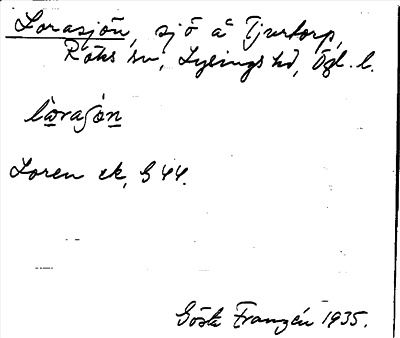 Lorasjön, sjö å Tjurtorp,
Röks sn, Lysings hd, Ögl. l.
lωraʃωn
Loren ek, G 44.
Gösta Franzén 1935.